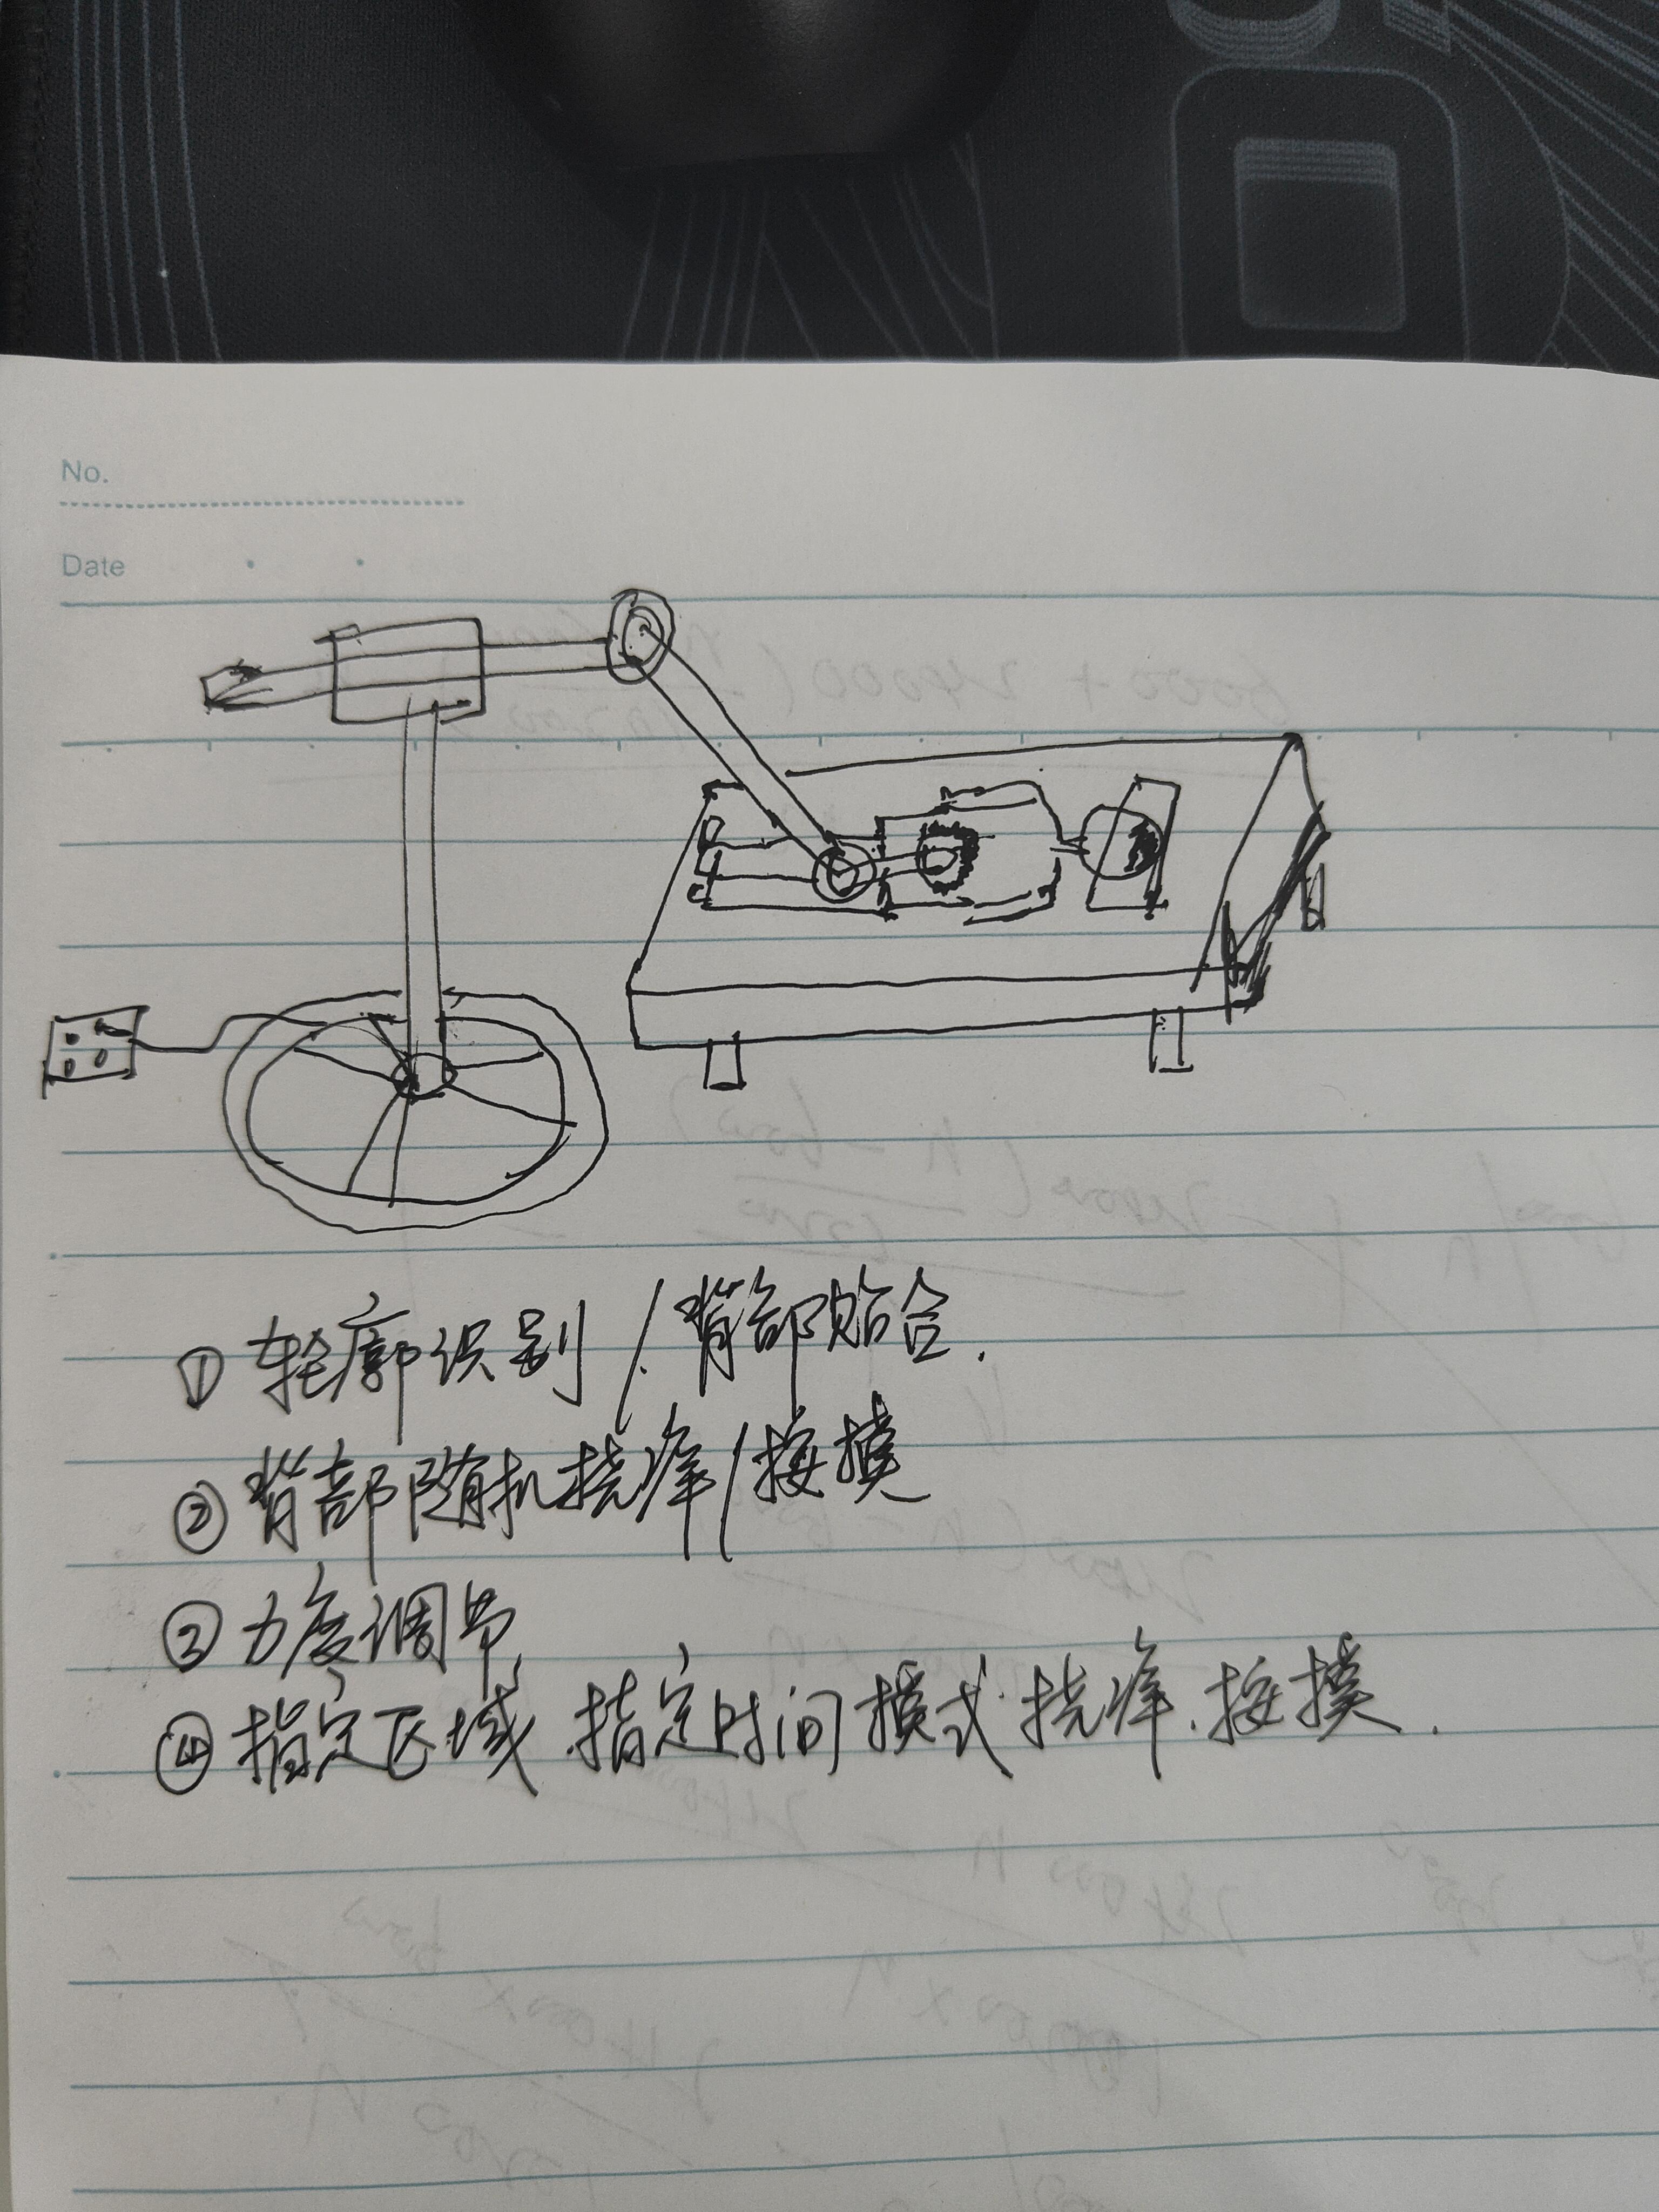 No.
Date
① 轮廓识别/背部贴合.
② 背部随机挠痒/按摸
③ 力度调节
④ 指定区域.指定时间模式挠痒.按摸.